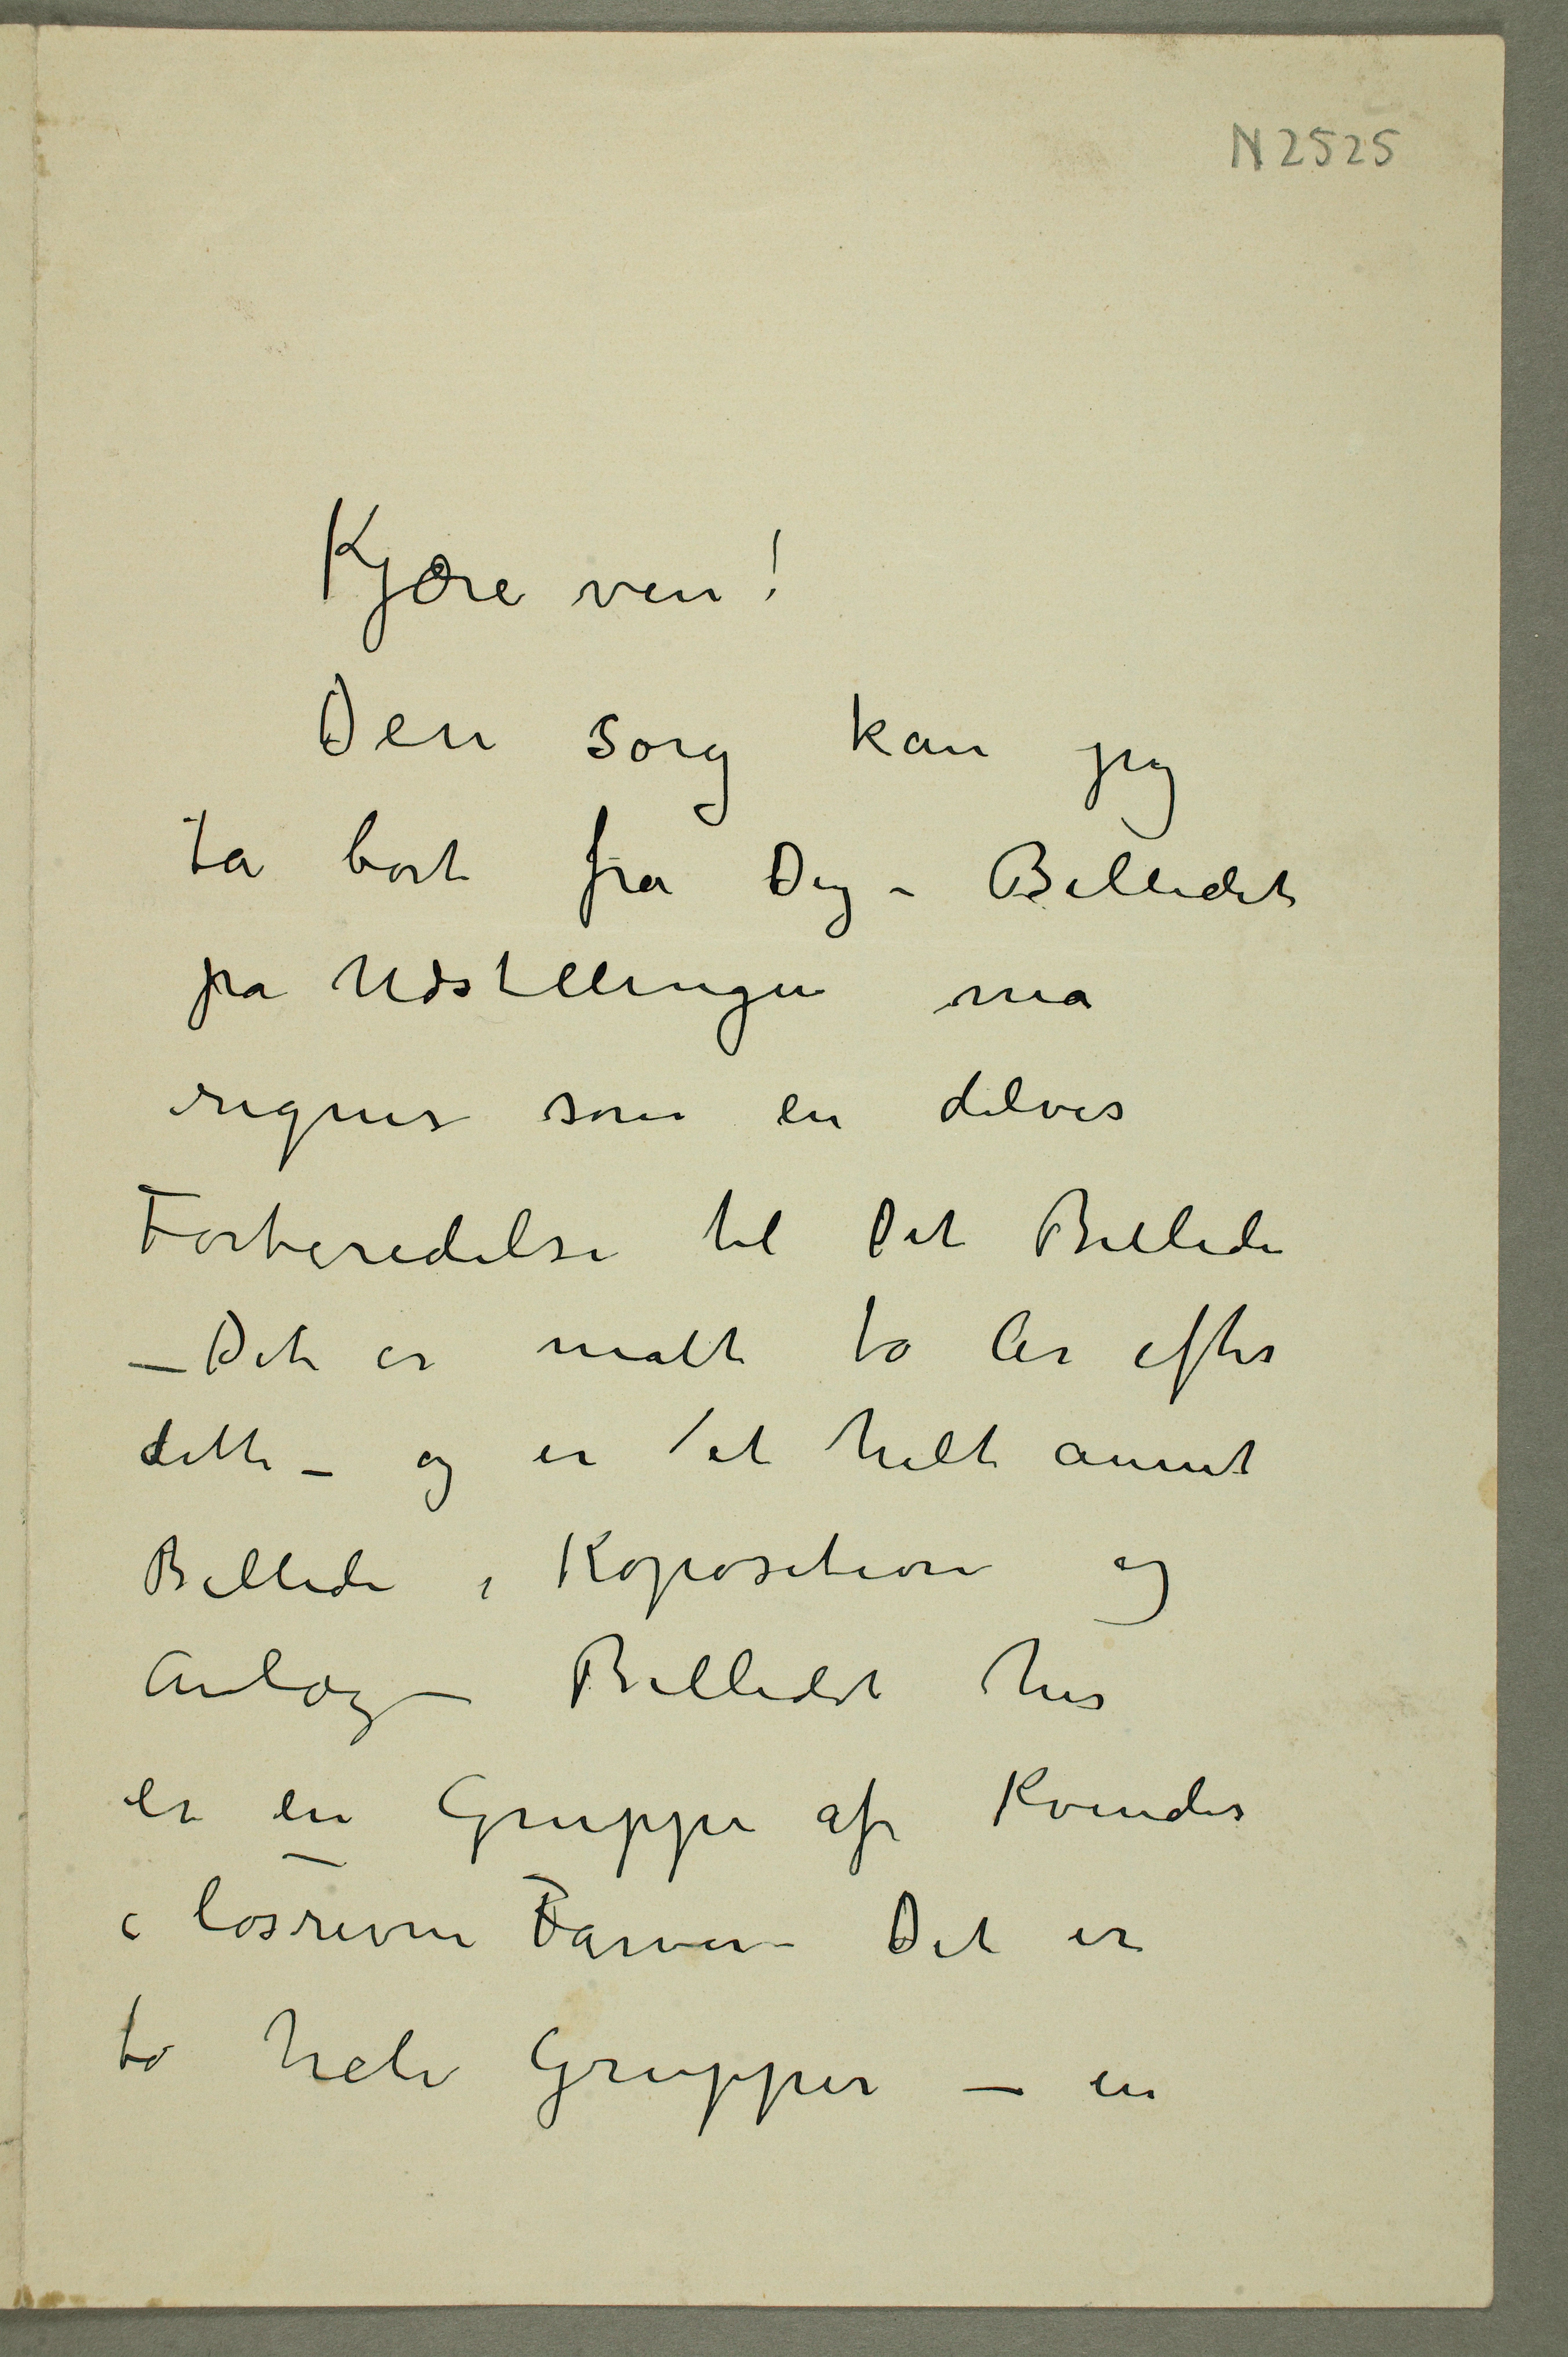 N 2525
Kjære ven!
Den sorg kan jeg
ta bort fra Dig – Billedet
på Udstillingen må
regnes som en delvis
Forberedelse til Dit Billede
– Dit er malt to År efter
dette – og er et helt annet
Billede i Koposition og
Anlæg – Billedet her
er en Gruppe af Kvinder
i løsrevne Farver – Dit er
to hele Grupper – en